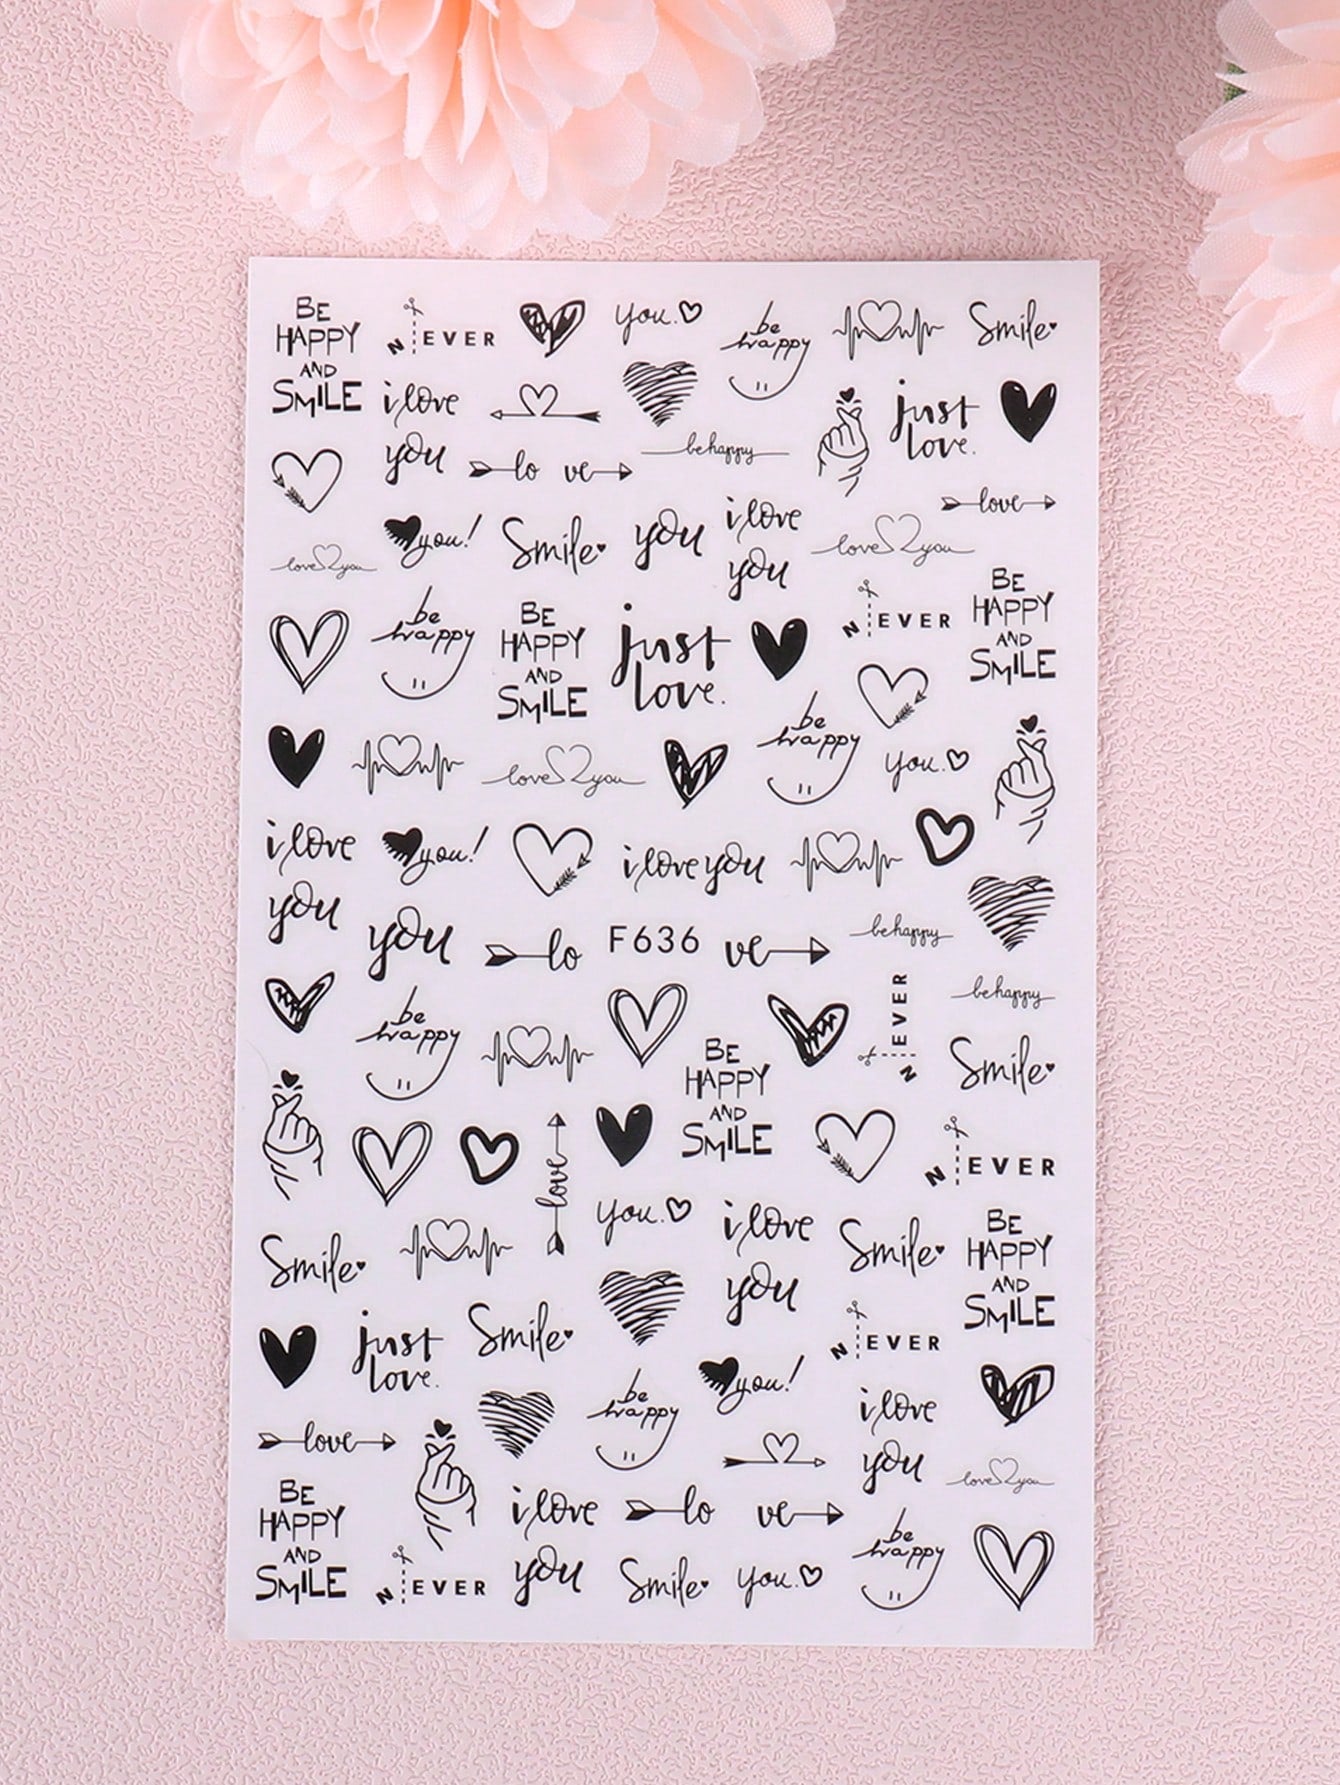 BE
HAPPY
AND
SMILE
NEVER
you.
be
happy
Smile
i love
you
just
love.
lo ve
be happy
love
you!
Smile
you
i love
you
love you
love you
be
happy
BE
HAPPY
AND
SMILE
just
love.
NEVER
BE
HAPPY
AND
SMILE
love you
be
happy
you.
i love
you
you!
i love you
you
lo F636 ve
be happy
be happy
be
happy
BE
HAPPY
AND
SMILE
NEVER
Smile
love
NEVER
you.
i love
you
Smile
Smile
BE
HAPPY
AND
SMILE
just
love.
Smile
NEVER
you!
be
happy
i love
you
love
love you
BE
HAPPY
AND
SMILE
NEVER
i love
you
lo ve
Smile
you.
be
happy